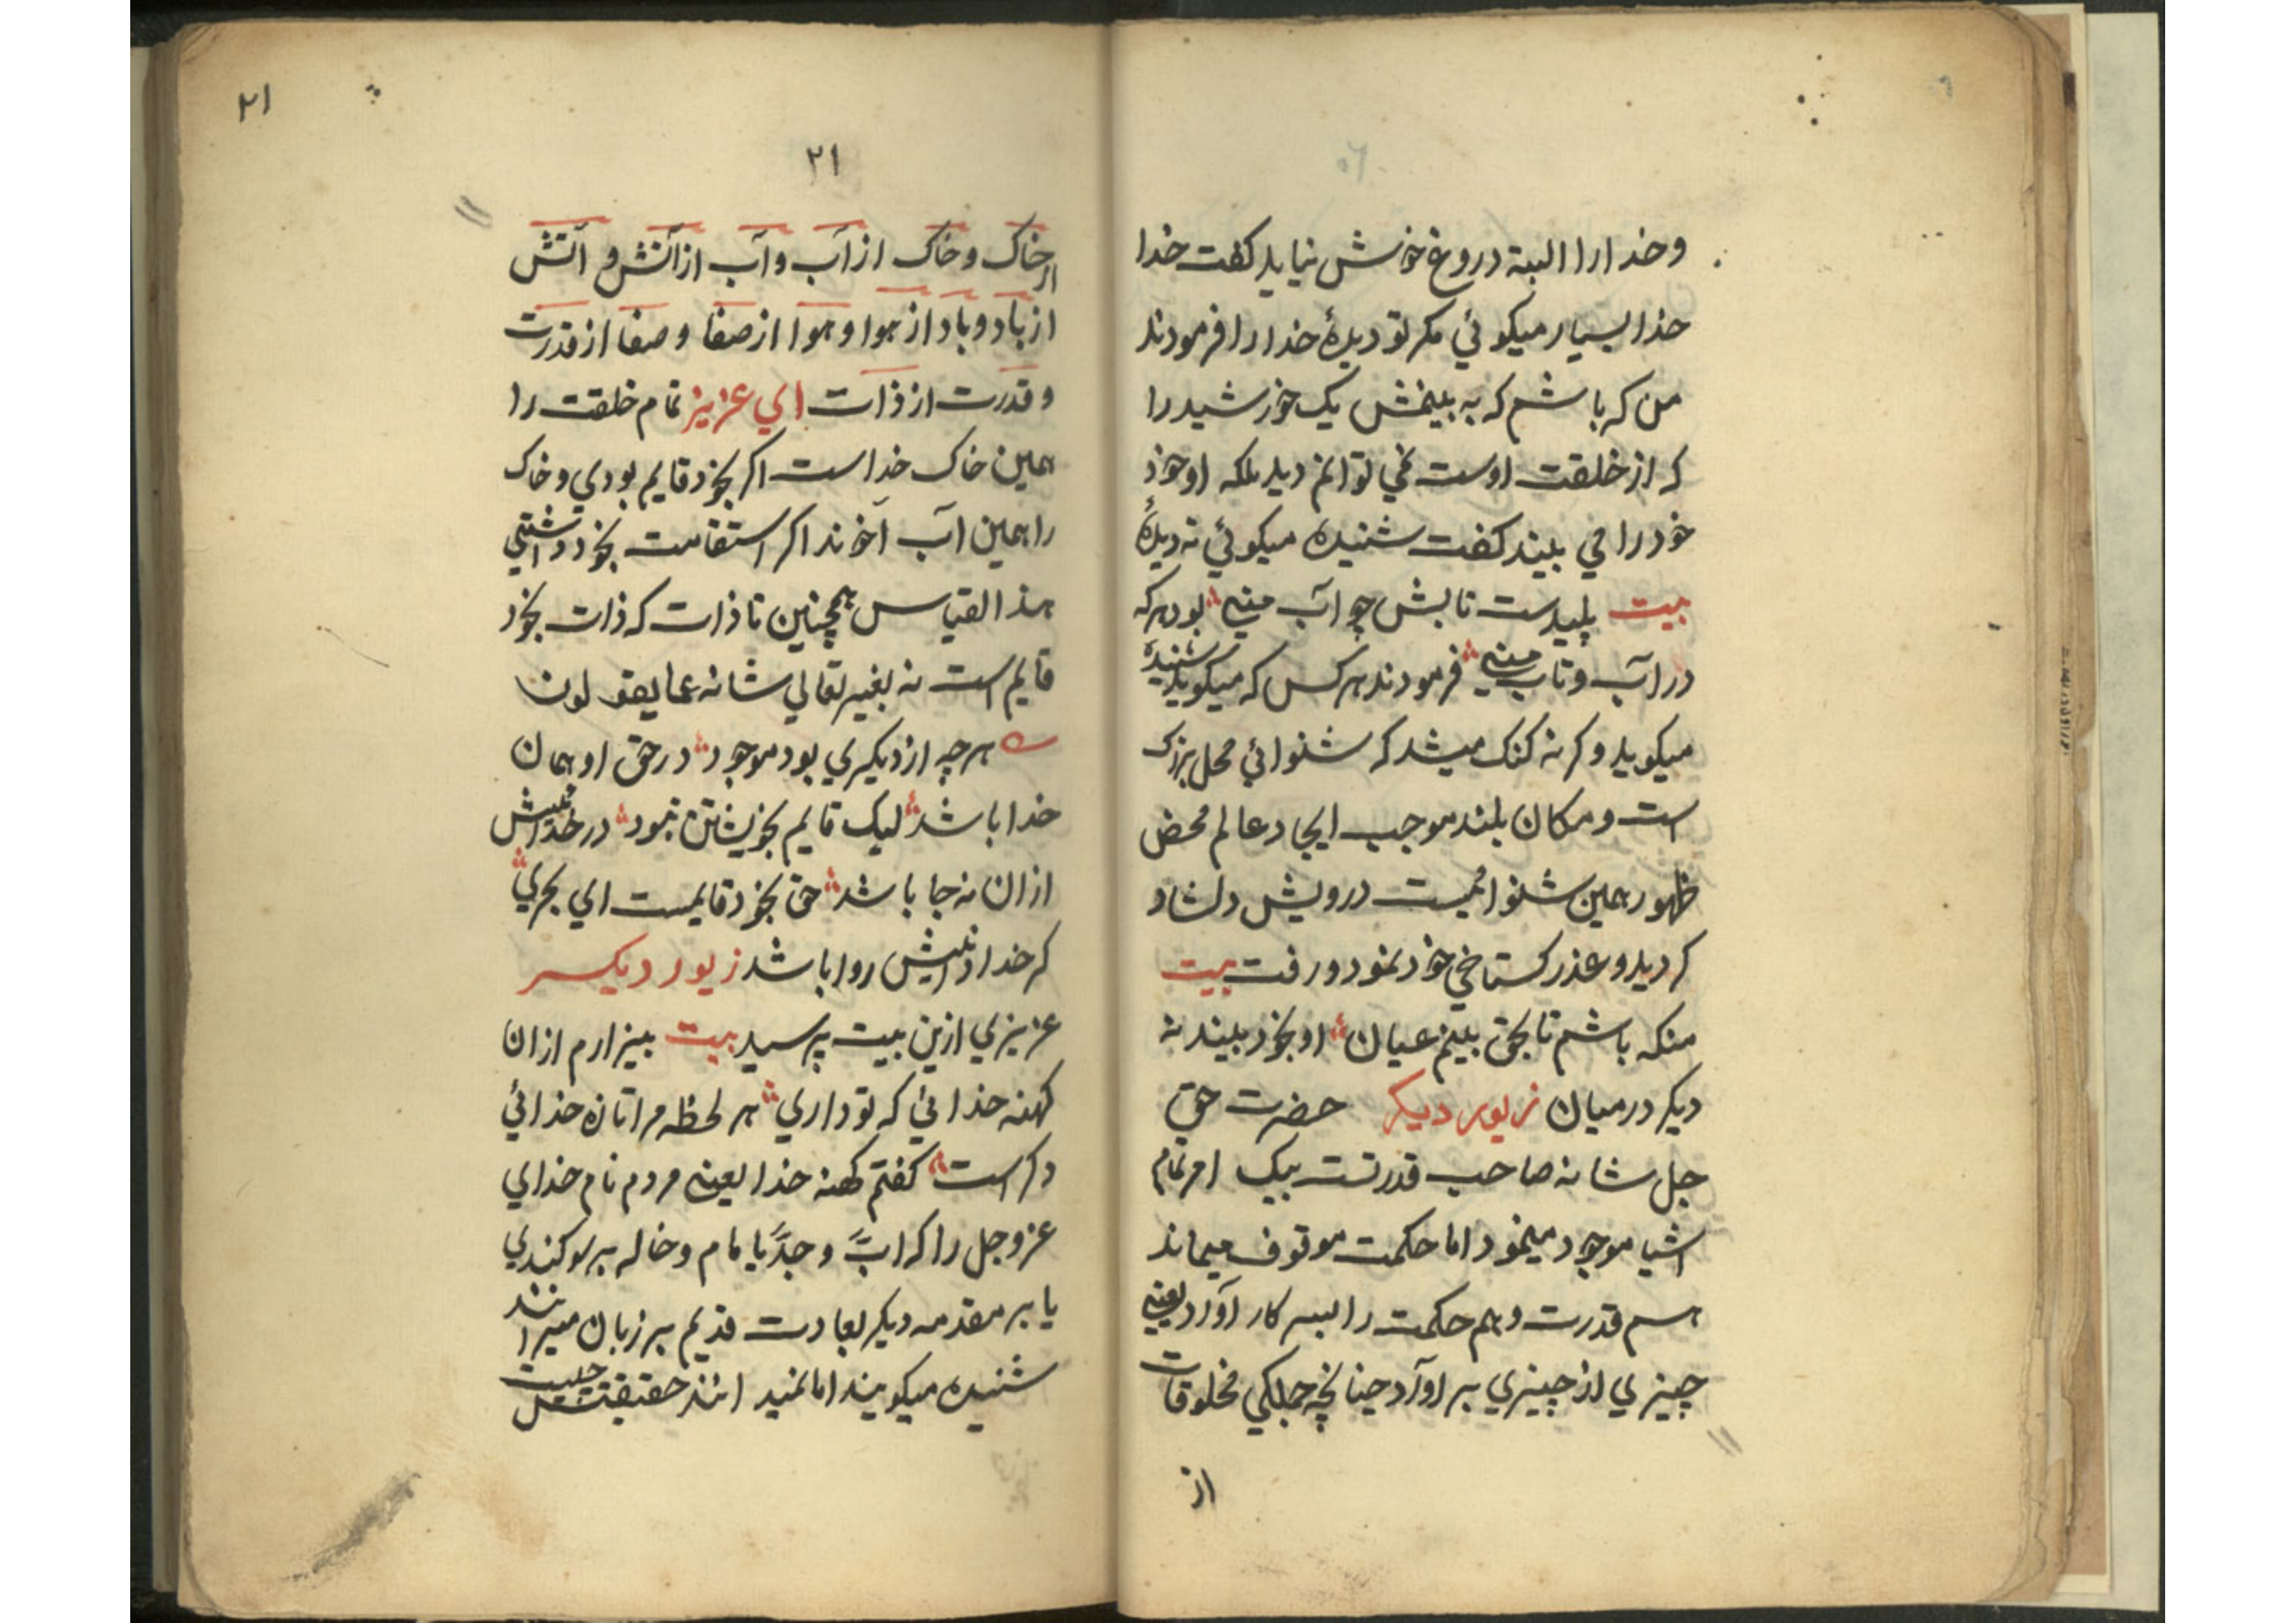 وخدارا البته دروغ خوش نیاید کفت خدا
خدا بسیار میکوئي مکر تو دیدهٔ خدارا فرمودند
من که باشم که به بینمش یک خورشید را
که از خلقت اوست نمي توانم دید بلکه او خود
خود را مي بیند کفت شنیده میکوئي نه دیدهٔ
بیت پلیدست تابش چو آب مني بود هر که
در آب و تاب مني فرمودند هر کس که میکوید شنیدهٔ
میکوید و کرنه کنک میشد که شنوائي محل بزرک
است و مکان بلند موجب ایجاد عالم محض
ظهور همین شنوائیست درویش دلشاد
کردید و عذر کستاخي خود نمود و رفت بیت
منکه باشم تا بحق بینم عیان او بخود بیند نه
دیکر درمیان زیور دیکر حضرت حق
جل شانه صاحب قدرتست بیک امر تمام
اشیا موجود مینمود اما حکمت موقوف میماند
هم قدرت و هم حکمت را ببسر کار آورد یعني
چیزي از چیزي بر آورد چنانچه جملکي مخلوقات
از
٢١
٢١
از خاک و خاک از آب و آب از آتش و آتش
از باد و باد از هوا و هوا از صفا و صفا از قدرت
و قدرت از ذات اي عزیز تمام خلقت را
همین خاک خداست اکر بخود قایم بودي و خاک
را همین آب آخوند اکر استقامت بخود داشتي
هذا القیاس همچنین تا ذات که ذات بخود
قایم است نه بغیر تعالي شانه عما یقولون
هر چه از دیکري بود موجود در حق او همان
خدا باشد لیک قایم بخویشتن نبود در خدائیش
ازان نه جا باشد حق بخود قایمست اي بحري
کر خدا دانیش روا باشد زیور دیکر
عزیزي ازین بیت پرسید بیت بیزارم ازان
کهنه خدائي که تو داري هر لحظه مرا تازه خدائي
دکر است کفتم کهنه خدا یعني مردم نام خداي
عز وجل را که ابًّ وجدًّ یا مام و خاله بر سوکندي
یا بر مقدمه دیکر بعادت قدیم بر زبان میرانند
شنیده میکویند اما نمید انند حقیقتش چیست